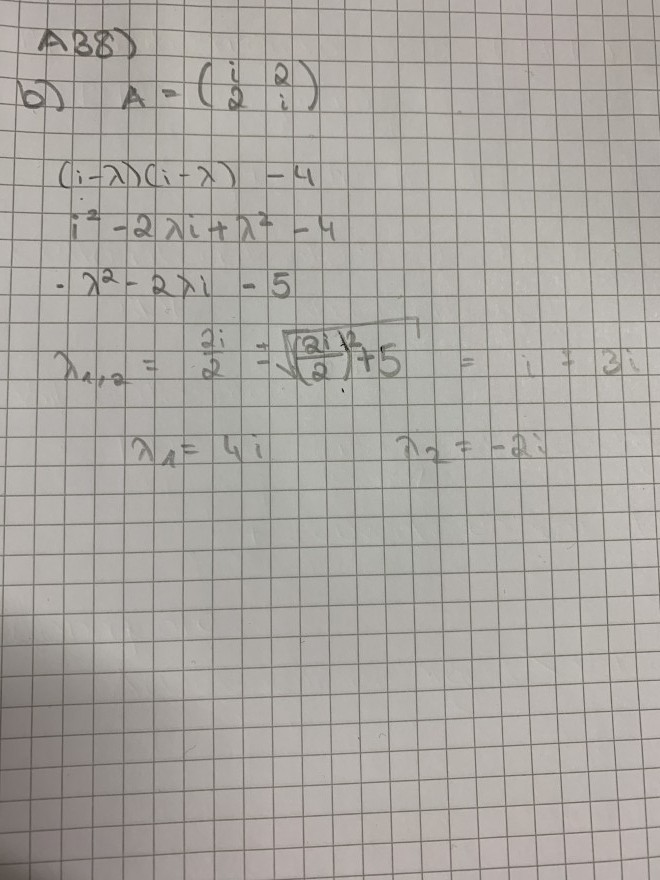 A38)
b) A = (i 2
2 i)
(i-λ)(i-λ) - 4
i² - 2λi + λ² - 4
- λ² - 2λi - 5
λ₁,₂ = 2i/2 ± √((2i/2)² + 5) = i ± 3i
λ₁ = 4i λ₂ = -2i